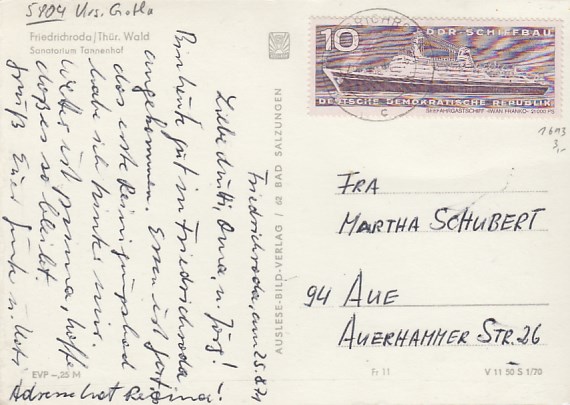 5804 Krs. Gotha
Friedrichroda/Thür. Wald
Sanatorium Tannenhof
Friedrichroda, am 25.8.71
Liebe Mutti, Oma, u. Jörg!
Bin heute gut in Friedrichroda
angekommen. Essen ist gut,
das erste Reinigungsbad
habe ich hinter mir.
Wetter ist prima, hoffe
daß es so bleibt.
Gruß Eure u.
Adresse hat Regina!
AUSLESE-BILD-VERLAG / 62 BAD SALZUNGEN
EVP -,25 M
10
DDR-SCHIFFBAU
DEUTSCHE DEMOKRATISCHE REPUBLIK
SEEFAHRGASTSCHIFF »IWAN FRANKO« 21000 PS
c
1693
3,-
FRA
MARTHA SCHUBERT
94 AUE
AUERHAMMER STR. 26
Fr 11
V 11 50 S 1/70